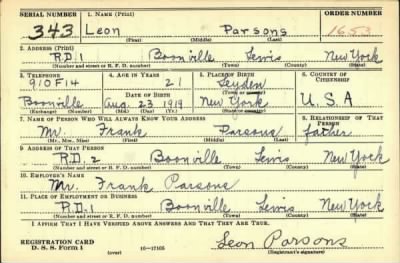 SERIAL NUMBER 1. NAME (Print) ORDER NUMBER
343 Leon Parsons 1653
(First) (Middle) (Last)
2. ADDRESS (Print)
R.D.1 Boonville Lewis New York
(Number and street or R. F. D. number) (Town) (County) (State)
3. TELEPHONE 4. AGE IN YEARS 5. PLACE OF BIRTH 6. COUNTRY OF CITIZENSHIP
910F14 21 Leyden
DATE OF BIRTH (Town or county)
Boonville Aug 23 1919 New York U.S.A
(Exchange) (Number) (Mo.) (Day) (Yr.) (State or country)
7. NAME OF PERSON WHO WILL ALWAYS KNOW YOUR ADDRESS 8. RELATIONSHIP OF THAT PERSON
Mr. Frank Parsons father
(Mr., Mrs., Miss) (First) (Middle) (Last)
9. ADDRESS OF THAT PERSON
R.D. 2 Boonville Lewis New York
(Number and street or R. F. D. number) (Town) (County) (State)
10. EMPLOYER'S NAME
Mr. Frank Parsons
11. PLACE OF EMPLOYMENT OR BUSINESS
R.D.1 Boonville Lewis New York
(Number and street or R. F. D. number) (Town) (County) (State)
I AFFIRM THAT I HAVE VERIFIED ABOVE ANSWERS AND THAT THEY ARE TRUE.
REGISTRATION CARD Leon Parsons
D. S. S. Form 1 (over) 16-17105 (Registrant's signature)